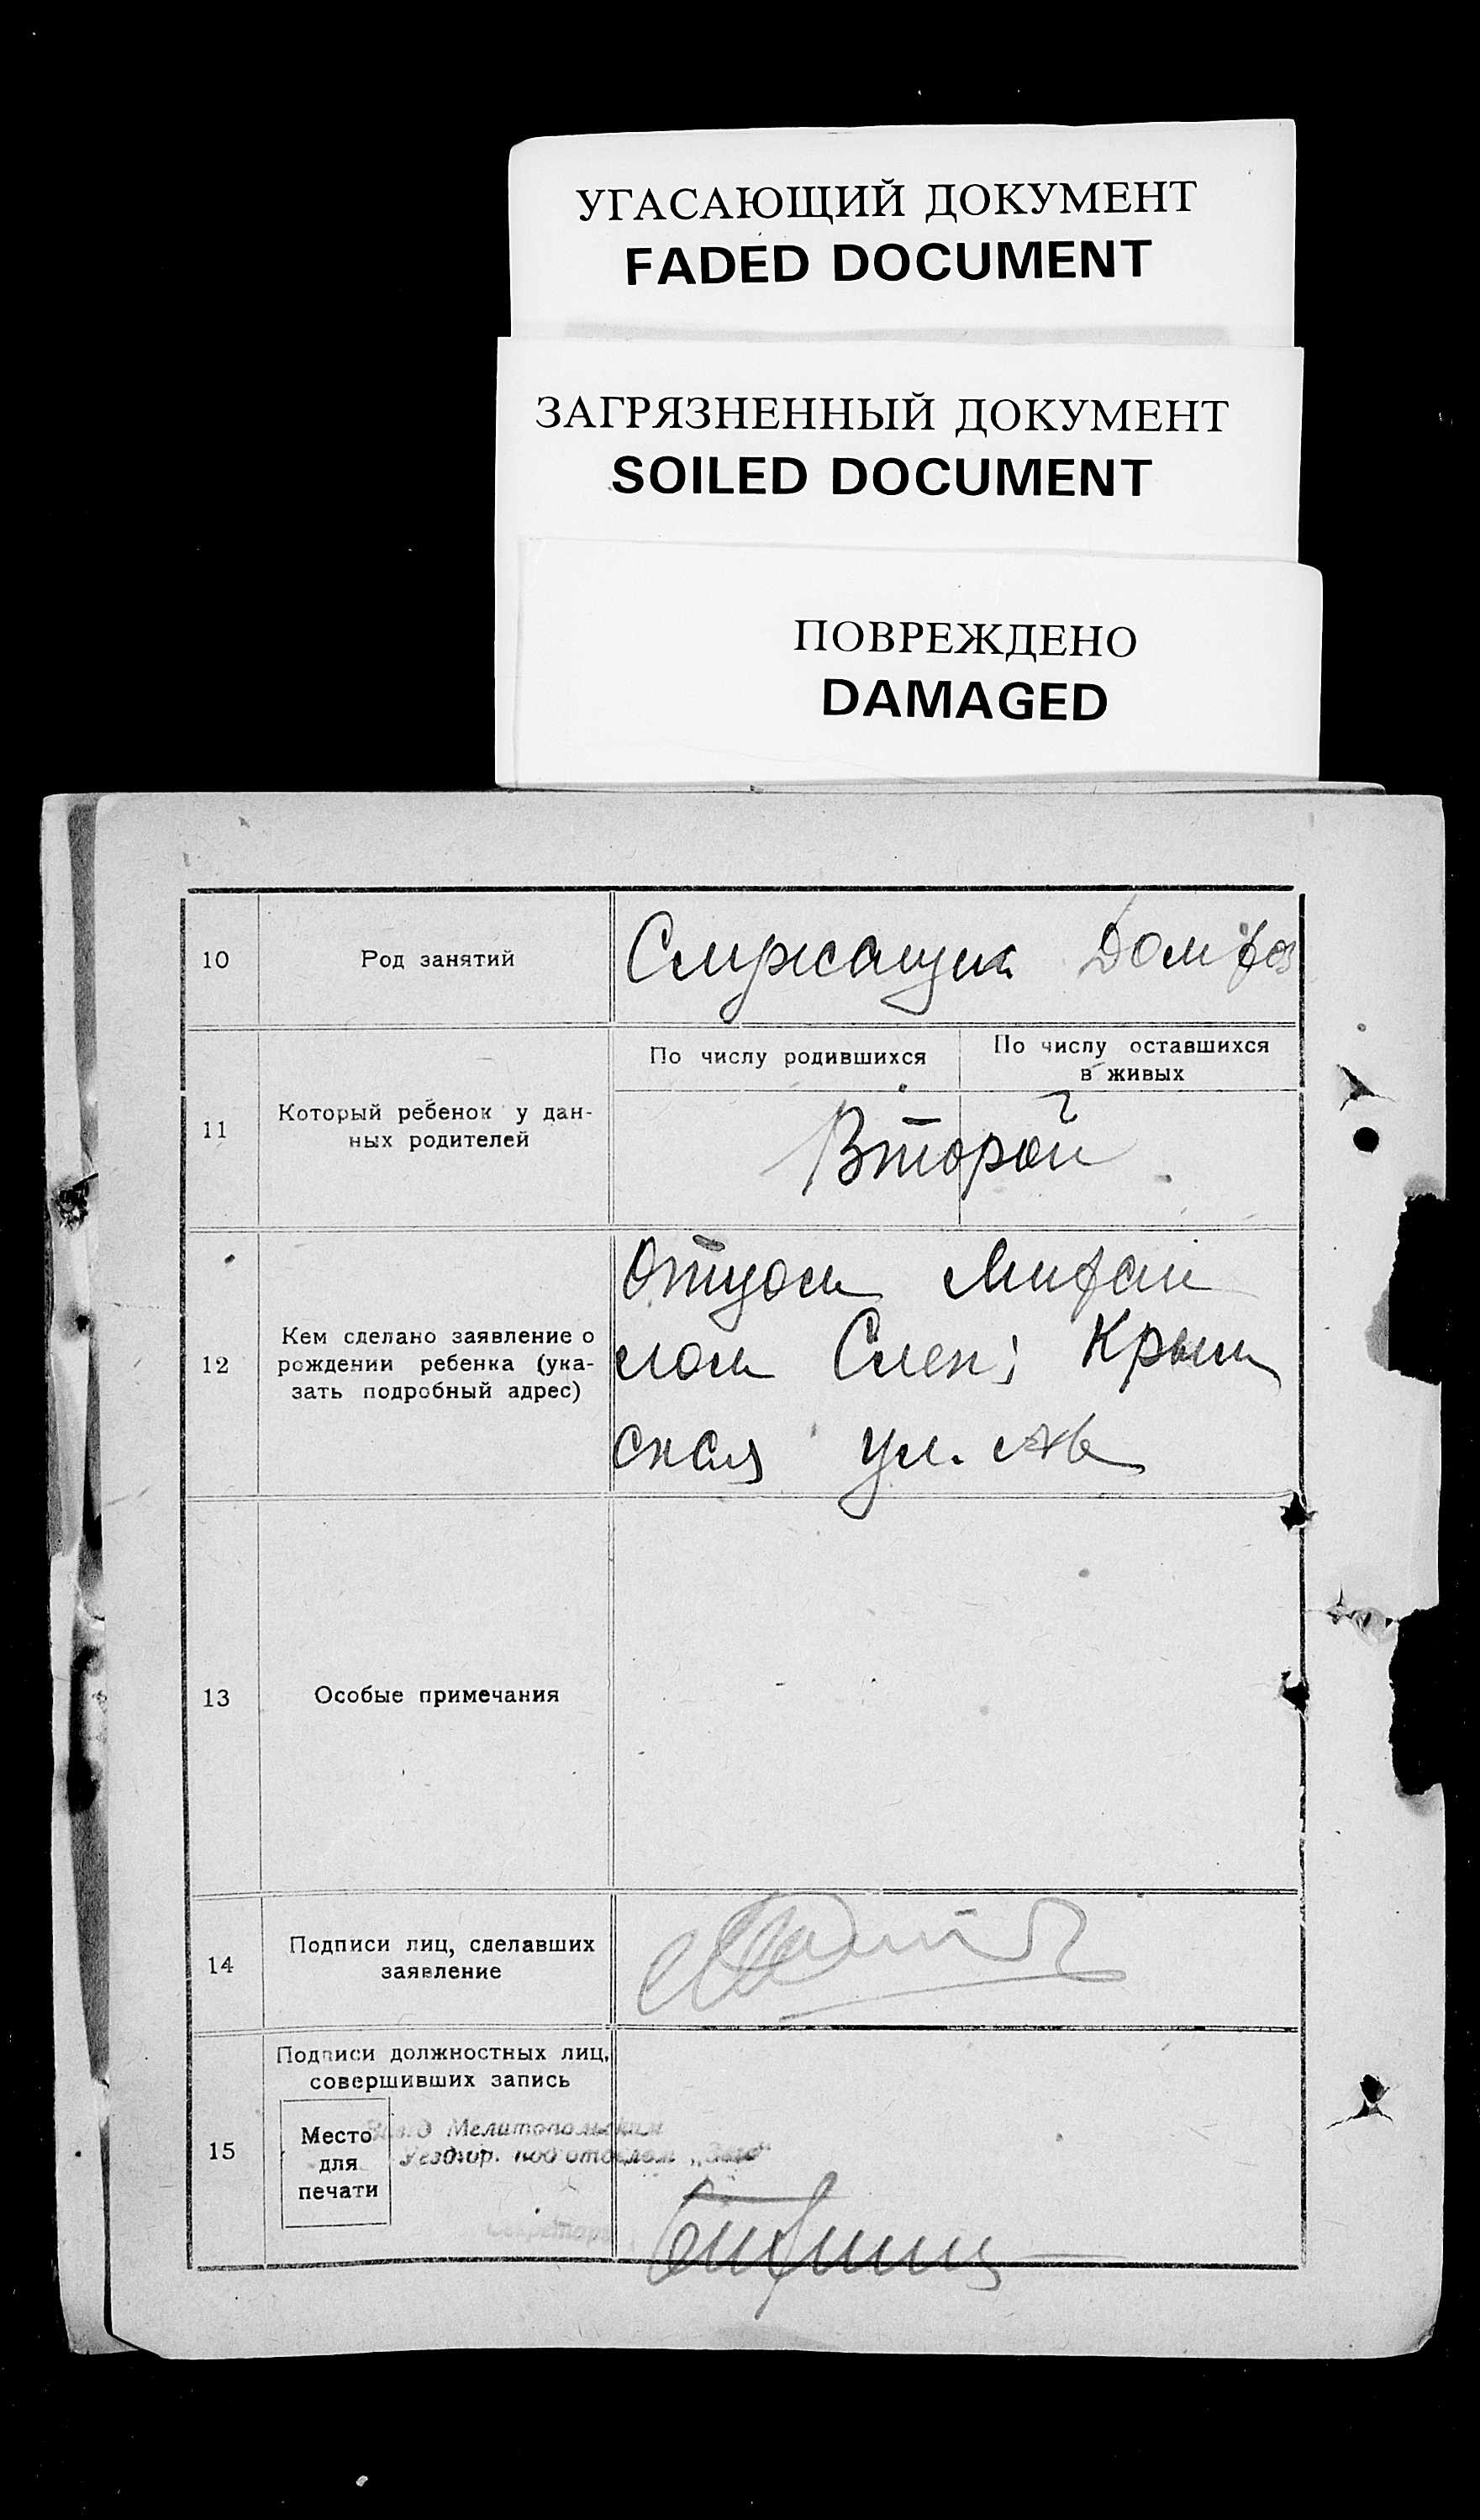 УГАСАЮЩИЙ ДОКУМЕНТ
FADED DOCUMENT
ЗАГРЯЗНЕННЫЙ ДОКУМЕНТ
SOILED DOCUMENT
ПОВРЕЖДЕНО
DAMAGED
10
Род занятий
Служащий
11
Который ребенок у дан-
ных родителей
По числу родившихся
По числу оставшихся
в живых
Второй
12
Кем сделано заявление о
рождении ребенка (ука-
зать подробный адрес)
Отцом Михаи
лом Крым
ская ул. №
13
Особые примечания
14
Подписи лиц, сделавших
заявление
15
Подписи должностных лиц,
совершивших запись
Место
для
печати
Мелитопольским
под отделом
Секретарь